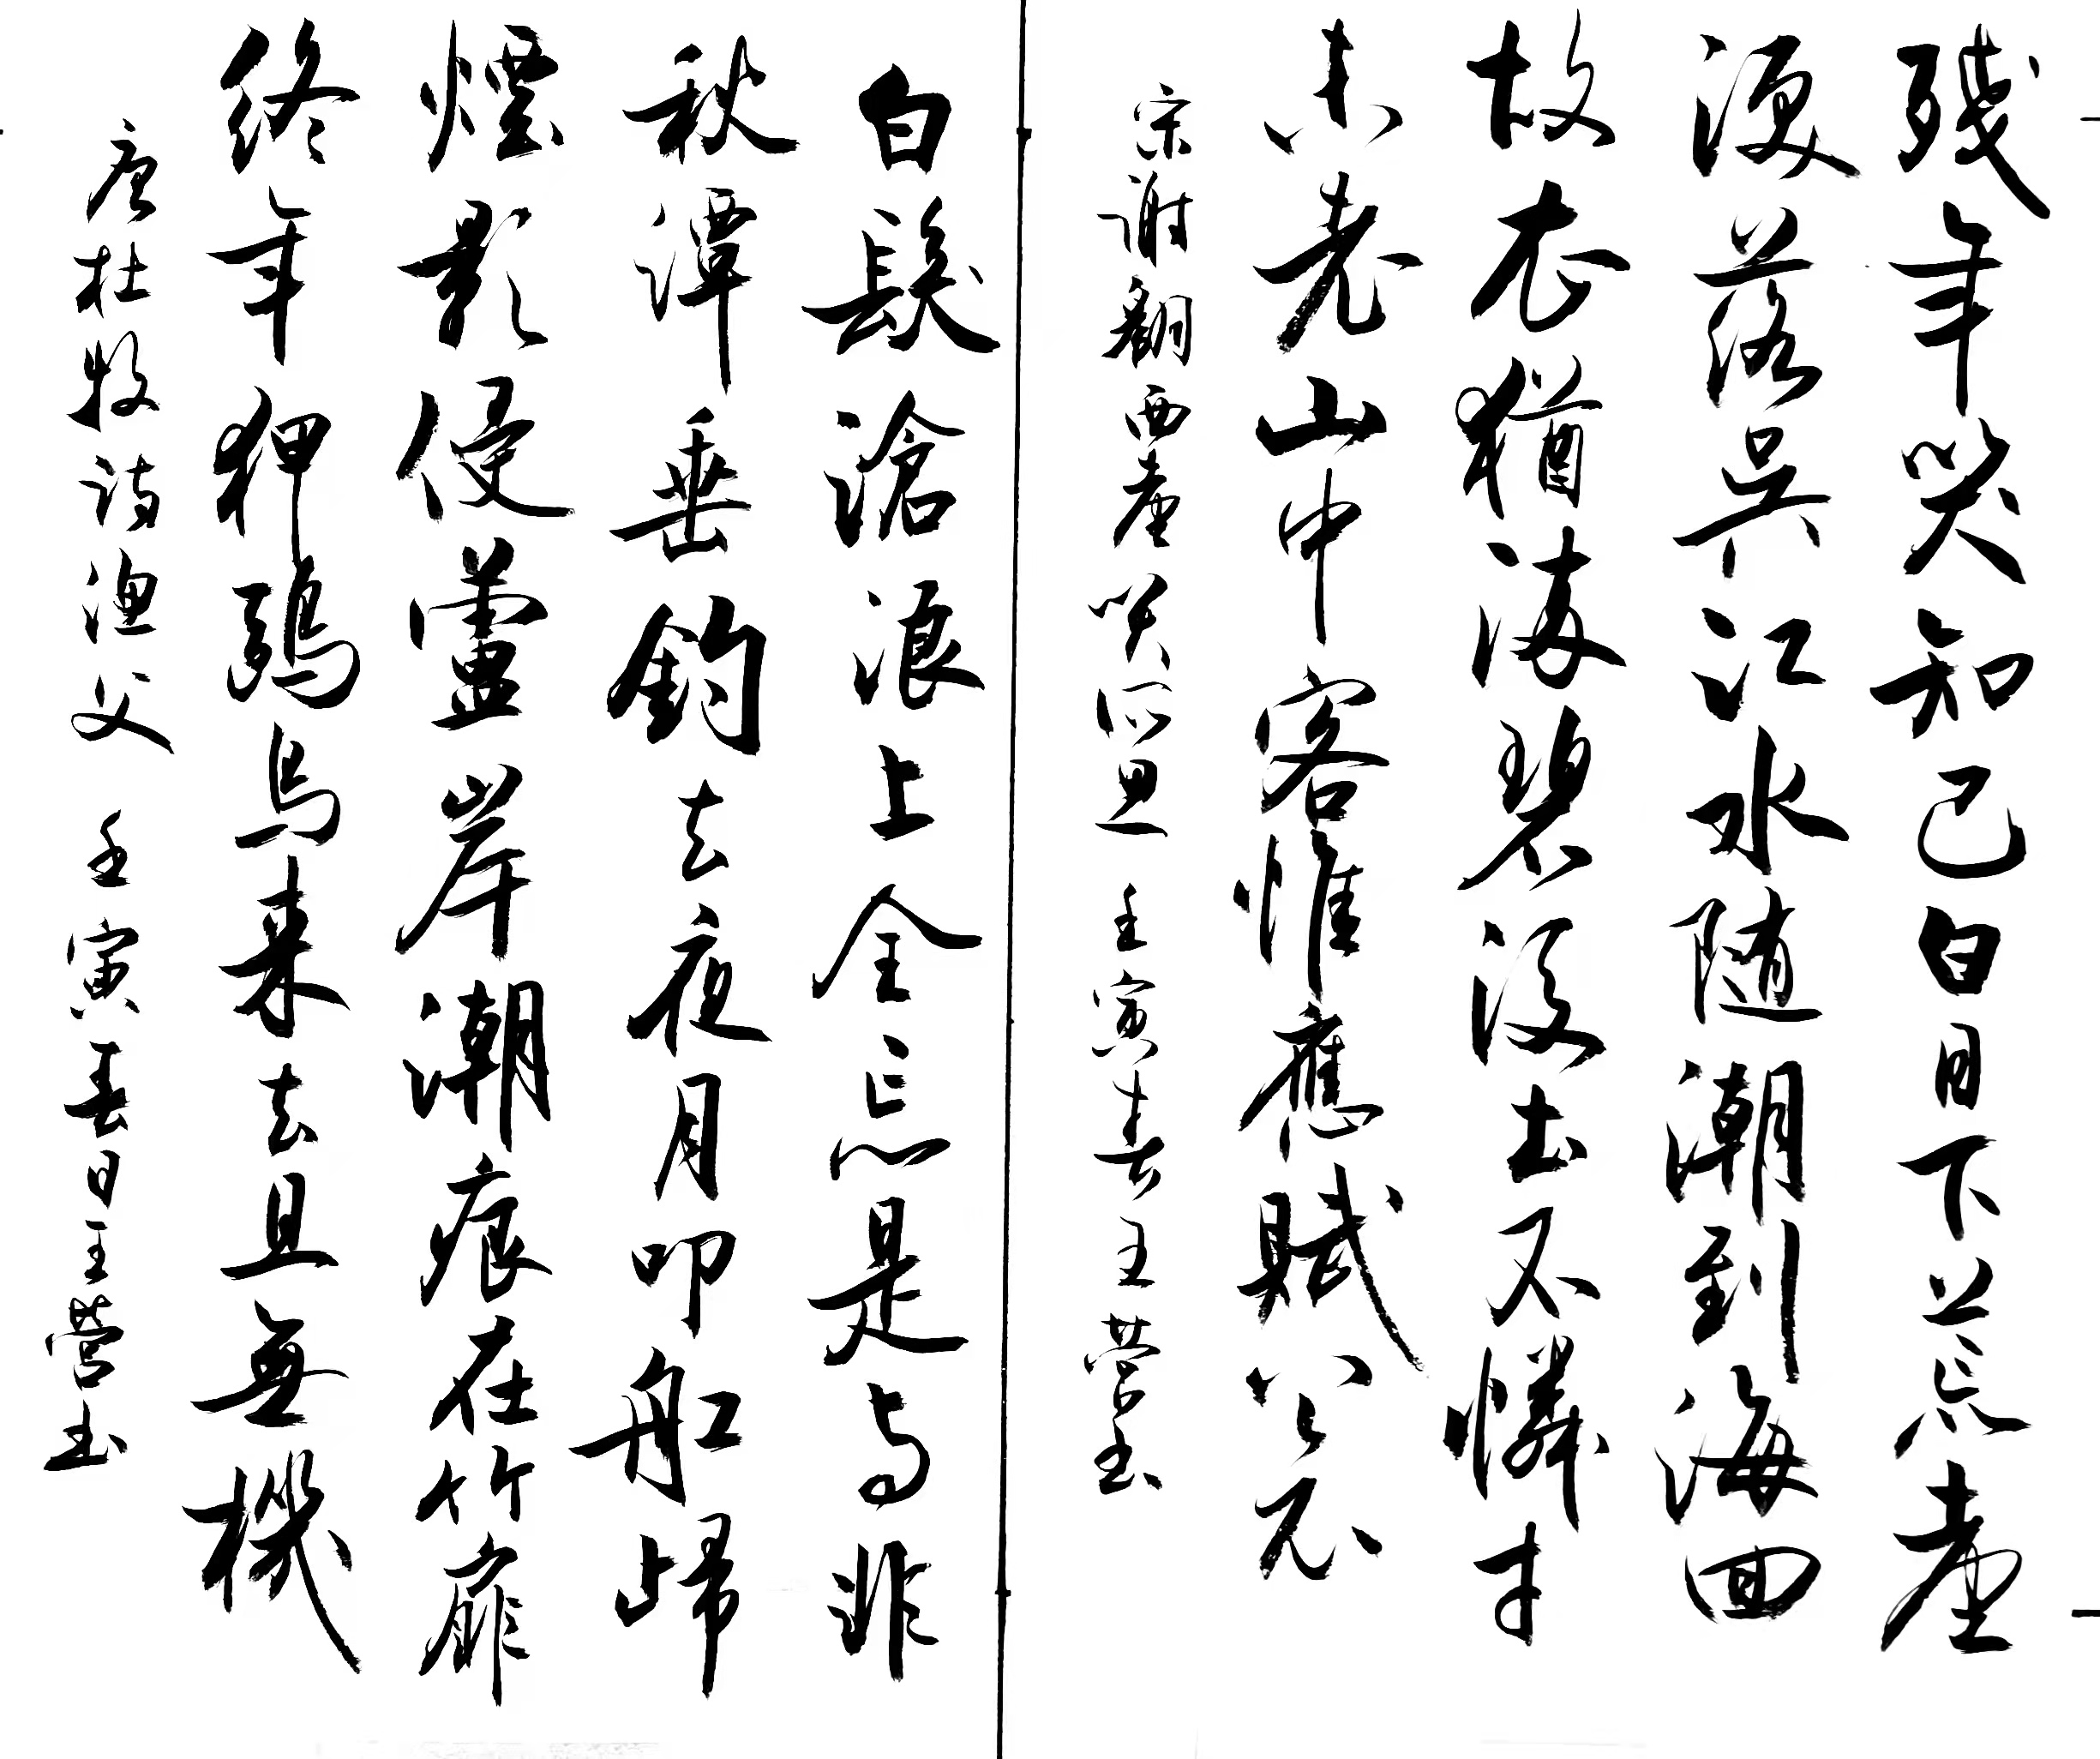 残年哭知己白日下荒臺
淚落吴江水随潮到海回
故衣猶染碧後土不憐才
未老山中客惟應賦八哀
宋谢翱西臺哭所思 壬寅春王營書
白髮滄浪上全忘是与非
秋潭垂釣去夜月叩船歸
煙影侵蘆岸潮痕在竹扉
终年狎鷗鳥来去且無機
唐杜牧詩漁父 壬寅春日王營書